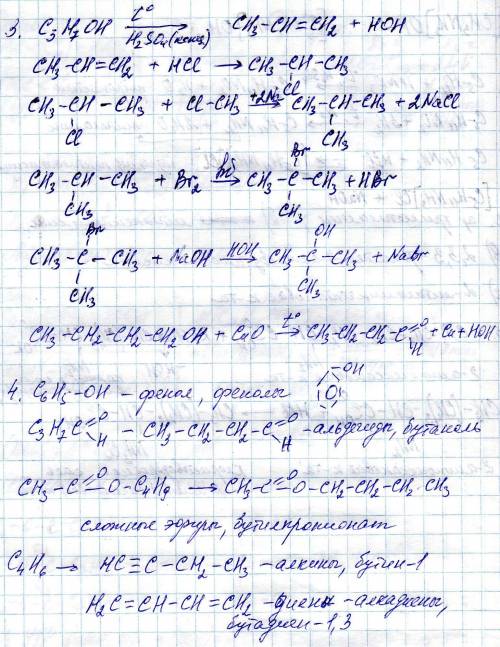 3. C₃H₇OH t° → H₂SO₄(конц) CH₃-CH=CH₂ + HOH
CH₃-CH=CH₂ + HCl → CH₃-CH-CH₃
Cl
CH₃-CH-CH₃ + Cl-CH₃ +2Na → CH₃-CH-CH₃ + 2NaCl
Cl CH₃
CH₃-CH-CH₃ + Br₂ → CH₃-C-CH₃ + HBr
Br
CH₃ CH₃
Br OH
CH₃-C-CH₃ + NaOH HOH → CH₃-C-CH₃ + NaBr
CH₃ CH₃
CH₃-CH₂-CH₂-CH₂OH + CuO t° → CH₃-CH₂-CH₂-C=O + Cu + HOH
H
4. C₆H₅-OH - фенол, фенолы -OH
C₃H₇C=O - CH₃-CH₂-CH₂-C=O - альдегиды, бутаналь
H H
CH₃-C=O-O-C₄H₉ → CH₃-C=O-O-CH₂-CH₂-CH₂-CH₃
сложные эфиры, бутилпропионат
C₄H₆ → HC≡C-CH₂-CH₃ - алкины, бутин-1
H₂C=CH-CH=CH₂ - диены - алкадиены,
бутадиен-1,3